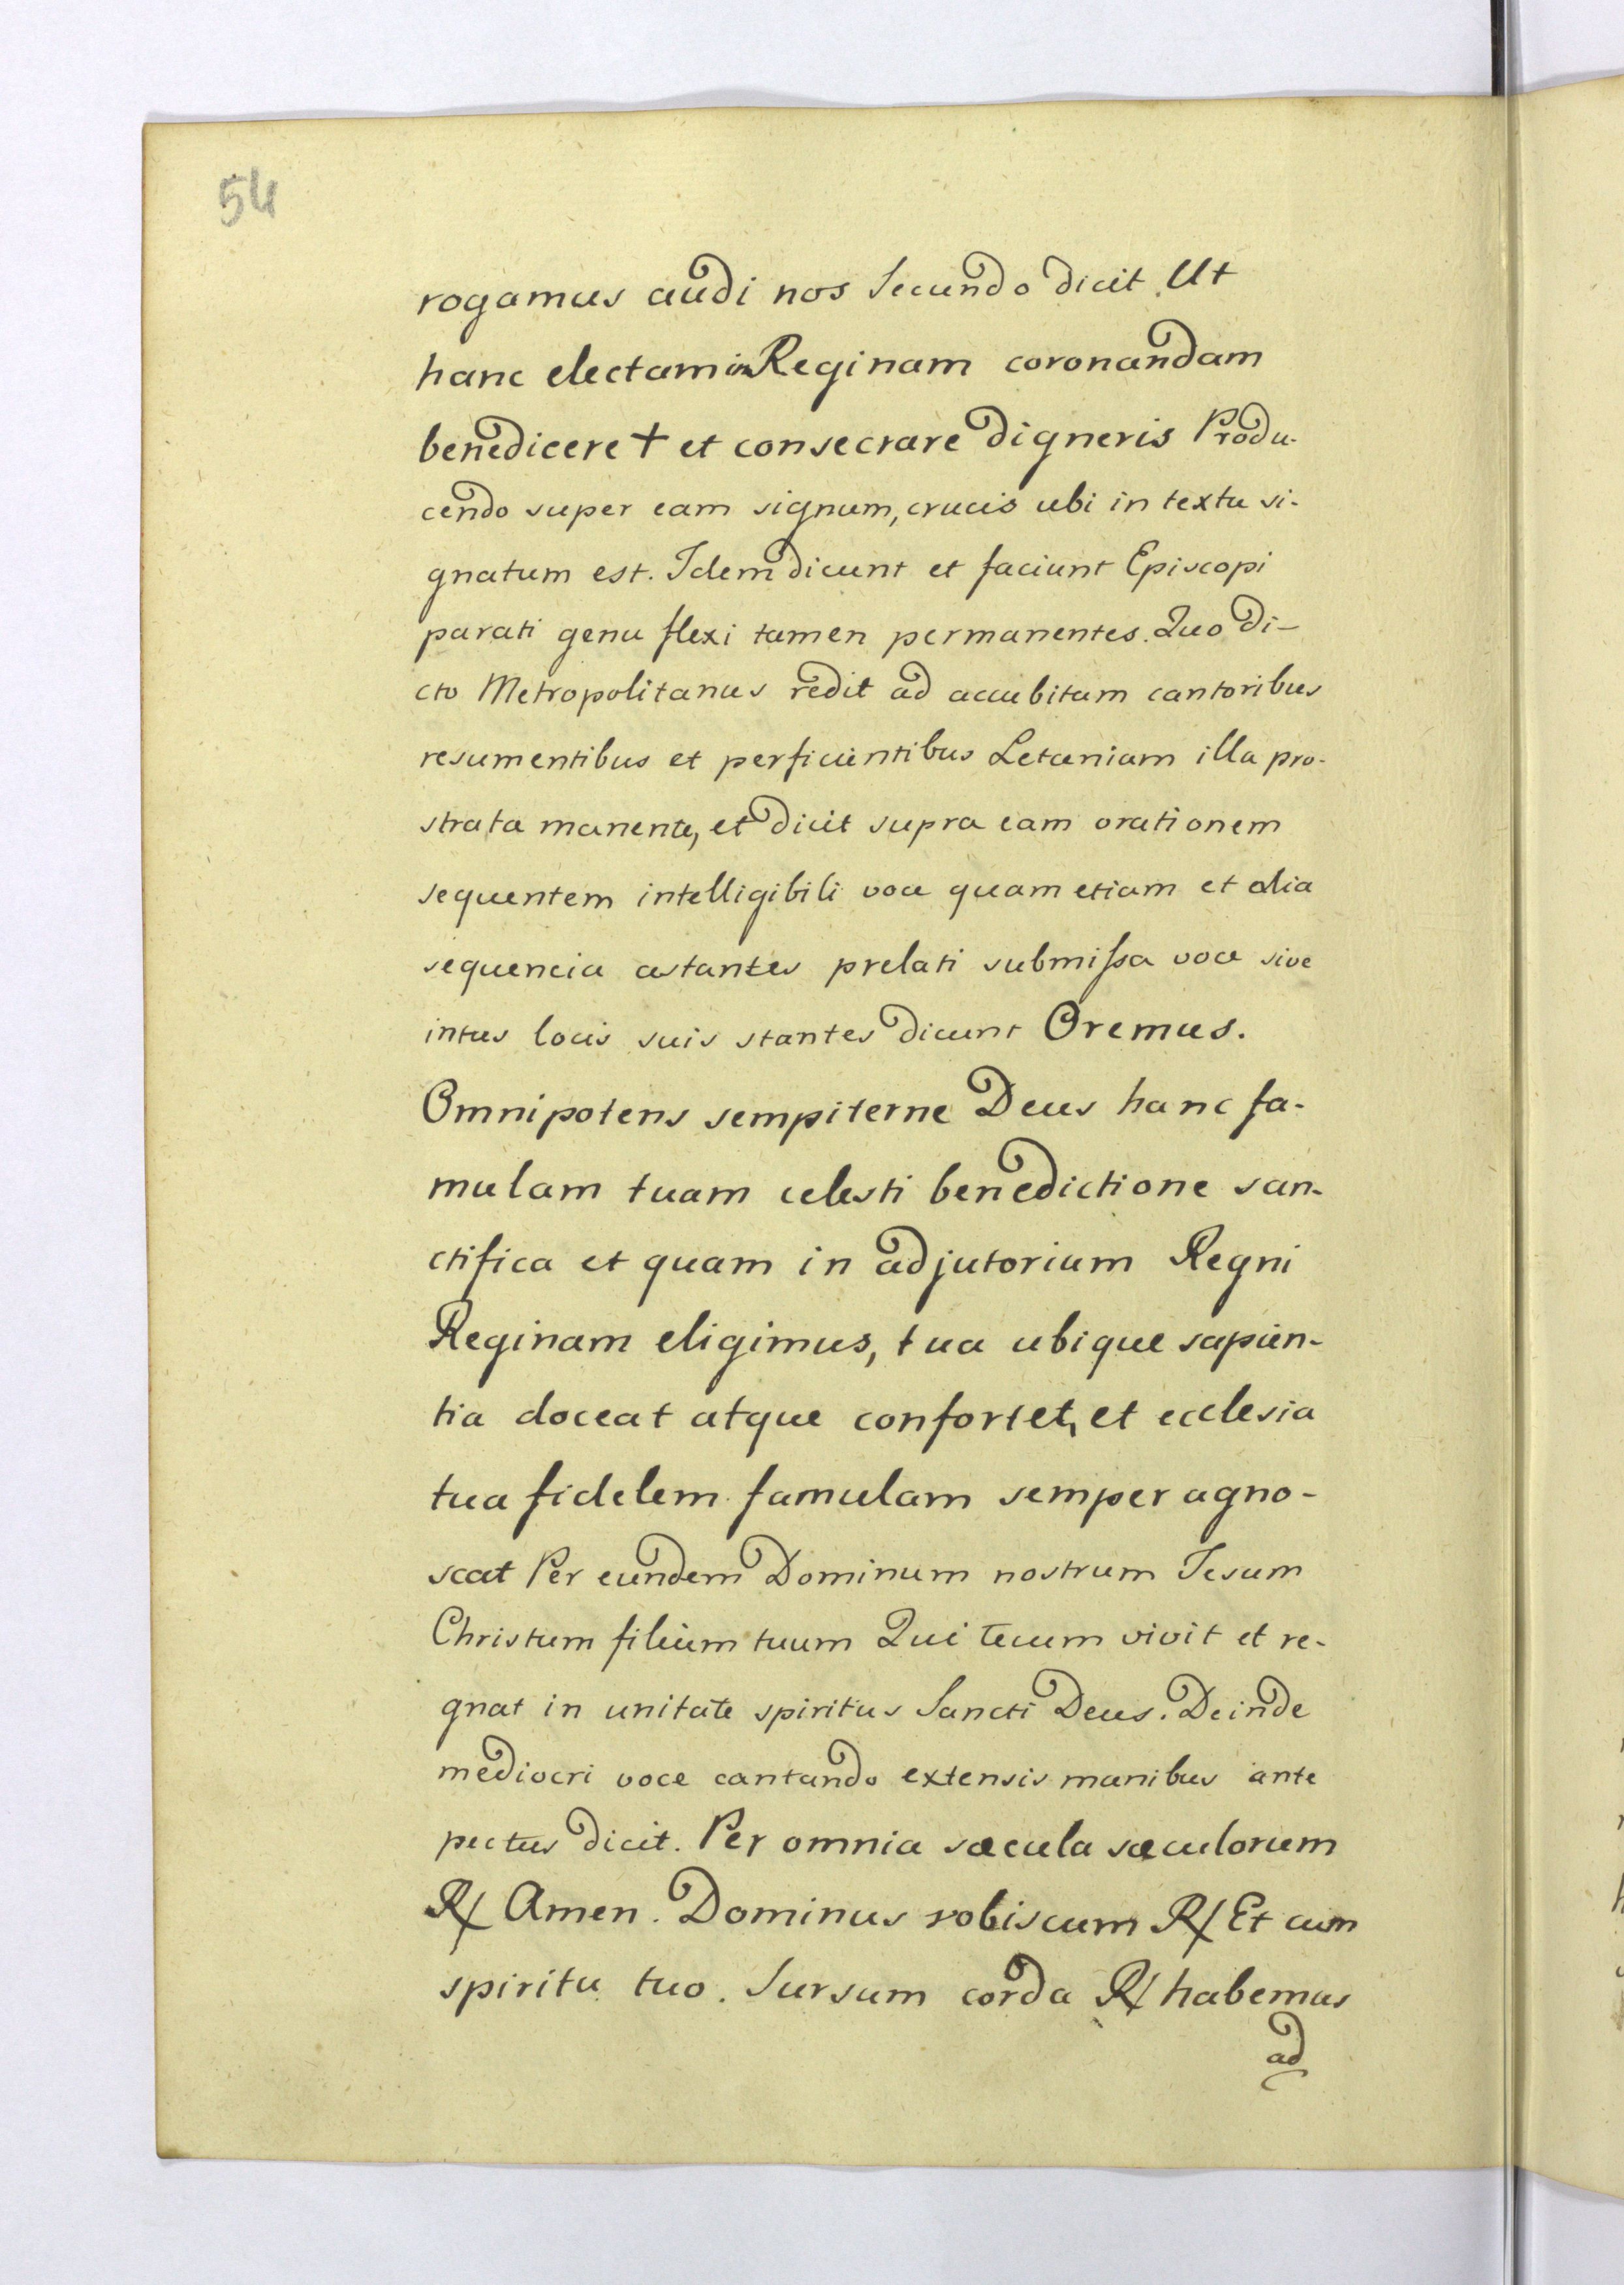 54
rogamus audi nos Secundo dicit Ut
hanc electam in Reginam coronandam
benedicere + et consecrare digneris Produ-
cendo super eam signum, crucis ubi in textu si-
gnatum est. Idem dicunt et faciunt Episcopi
parati genu flexi tamen permanentes. Quo di-
cto Metropolitanus redit ad accubitum cantoribus
resumentibus et perficientibus Letaniam illa pro-
strata manente, et dicit supra eam orationem
sequentem intelligibili voce quam etiam et alia
sequencia astantes prelati submissa voce sive
intus locis suis stantes dicunt Oremus.
Omnipotens sempiterne Deus hanc fa-
mulam tuam celesti benedictione san-
ctifica et quam in adjutorium Regni
Reginam eligimus, tua ubique sapien-
tia doceat atque confortet, et ecclesia
tua fidelem famulam semper agno-
scat Per eundem Dominum nostrum Iesum
Christum filium tuum Qui tecum vivit et re-
gnat in unitate spiritus Sancti Deus. Deinde
mediocri voce cantando extensis manibus ante
pectus dicit. Per omnia sæcula sæculorum
℟ Amen. Dominus vobiscum ℟ Et cum
spiritu tuo. Sursum corda ℟ habemus
ad